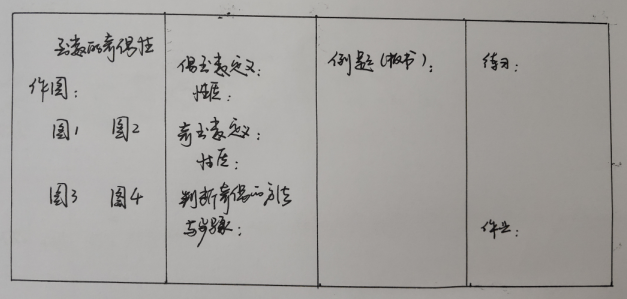 函数的奇偶性
作图：
图1 图2
图3 图4
偶函数定义：
性质：
奇函数定义：
性质：
判断奇偶的方法
与步骤：
例题（板书）：
练习：
作业：